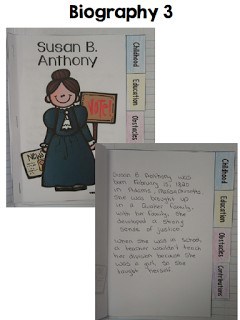 Biography 3
Susan B.
Anthony
VOTE!
NEWS
Childhood
Education
Obstacles
Susan B. Anthony was
born February 15, 1820
in Adams, Massachusetts.
She was brought up
in a Quaker family.
With her family, she
developed a strong
sense of justice.
When she was in school
a teacher wouldn't teach
her division because she
was a girl. So she
taught herself.
Childhood
Education
Obstacles
Contributions